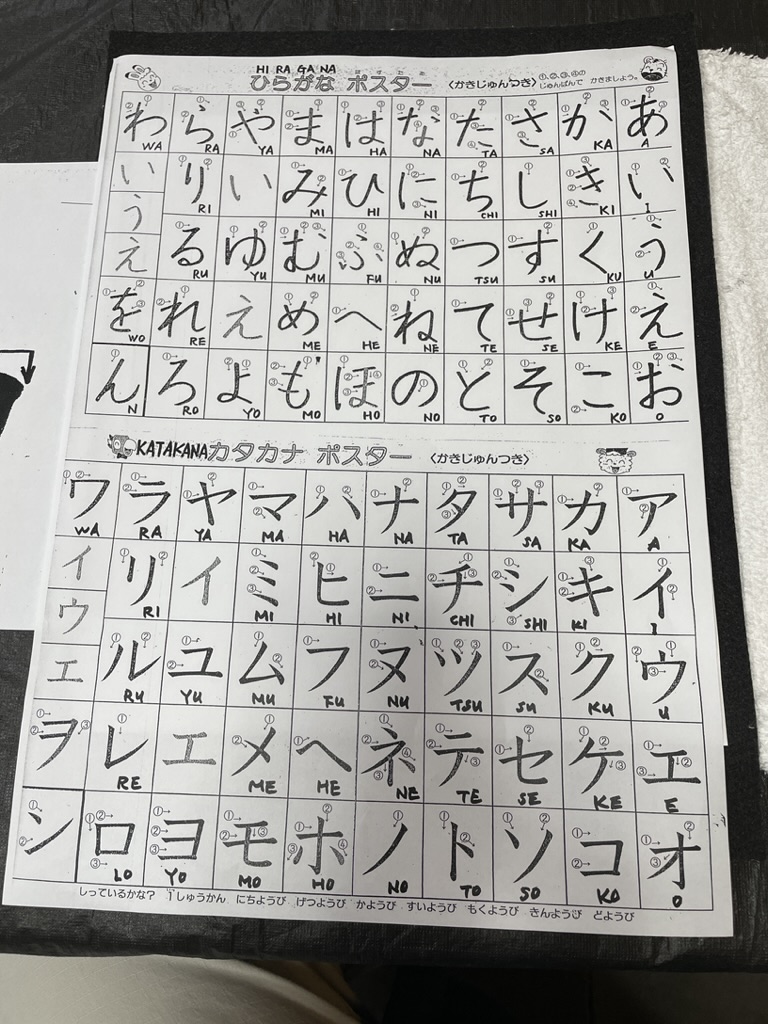 HI RA GA NA
ひらがな ポスター 〈かきじゅんつき〉 ①、②、③、④の じゅんばんで かきましょう。
わ ら や ま は な た さ か あ
WA RA YA MA HA NA TA SA KA A
い り い み ひ に ち し き い
RI MI HI NI CHI SHI KI I
う る ゆ む ふ ぬ つ す く う
RU YU MU FU NU TSU SU KU U
え
を れ え め へ ね て せ け え
WO RE ME HE NE TE SE KE E
ん ろ よ も ほ の と そ こ お
N RO YO MO HO NO TO SO KO O
KATAKANA カタカナ ポスター 〈かきじゅんつき〉
ワ ラ ヤ マ ハ ナ タ サ カ ア
WA RA YA MA HA NA TA SA KA A
イ リ イ ミ ヒ ニ チ シ キ イ
RI MI HI NI CHI SHI KI I
ウ
エ ル ユ ム フ ヌ ツ ス ク ウ
RU YU MU FU NU TSU SU KU U
ヲ レ エ メ ヘ ネ テ セ ケ エ
RE ME HE NE TE SE KE E
ン ロ ヨ モ ホ ノ ト ソ コ オ
LO YO MO HO NO TO SO KO O
しっているかな？ 1しゅうかん にちようび げつようび かようび すいようび もくようび きんようび どようび